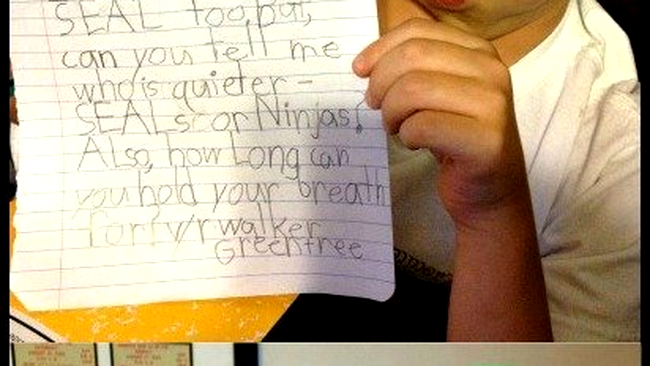 SEAL too, but,
can you tell me
who is quieter -
SEALs or Ninjas?
Also, how Long can
you hold your breath
for? v/r walker
Greentree